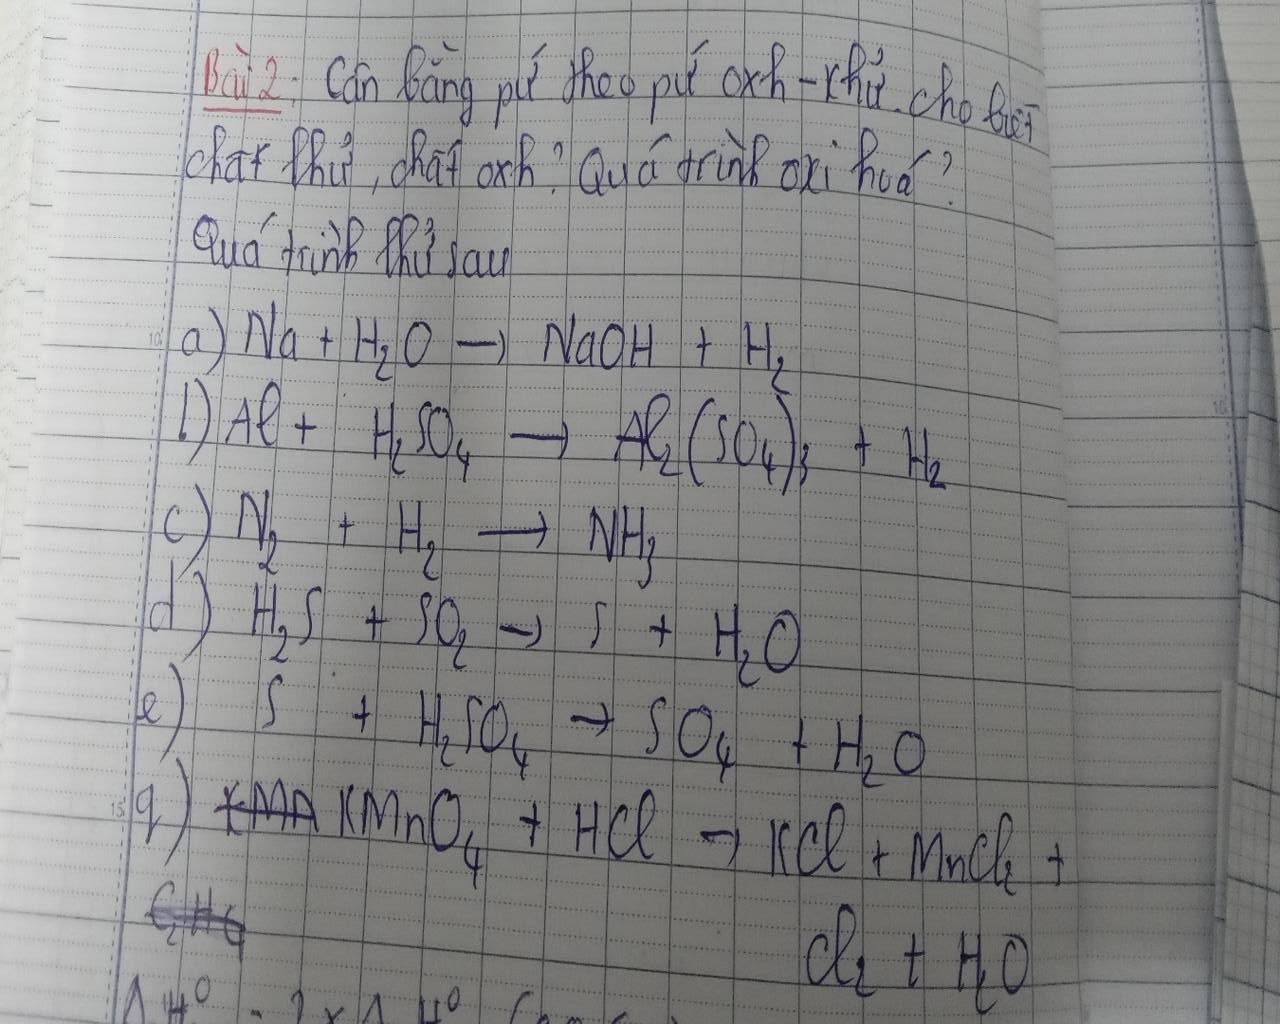 Bài 2: Cân bằng pứ theo pứ oxh-khử. cho biết
chất khử, chất oxh? Quá trình oxi hoá?
Quá trình khử sau
a) Na + H₂O → NaOH + H₂
b) Al + H₂SO₄ → Al₂(SO₄)₃ + H₂
c) N₂ + H₂ → NH₃
d) H₂S + SO₂ → S + H₂O
e) S + H₂SO₄ → SO₄ + H₂O
q) KMnO₄ + HCl → KCl + MnCl₂ +
Cl₂ + H₂O